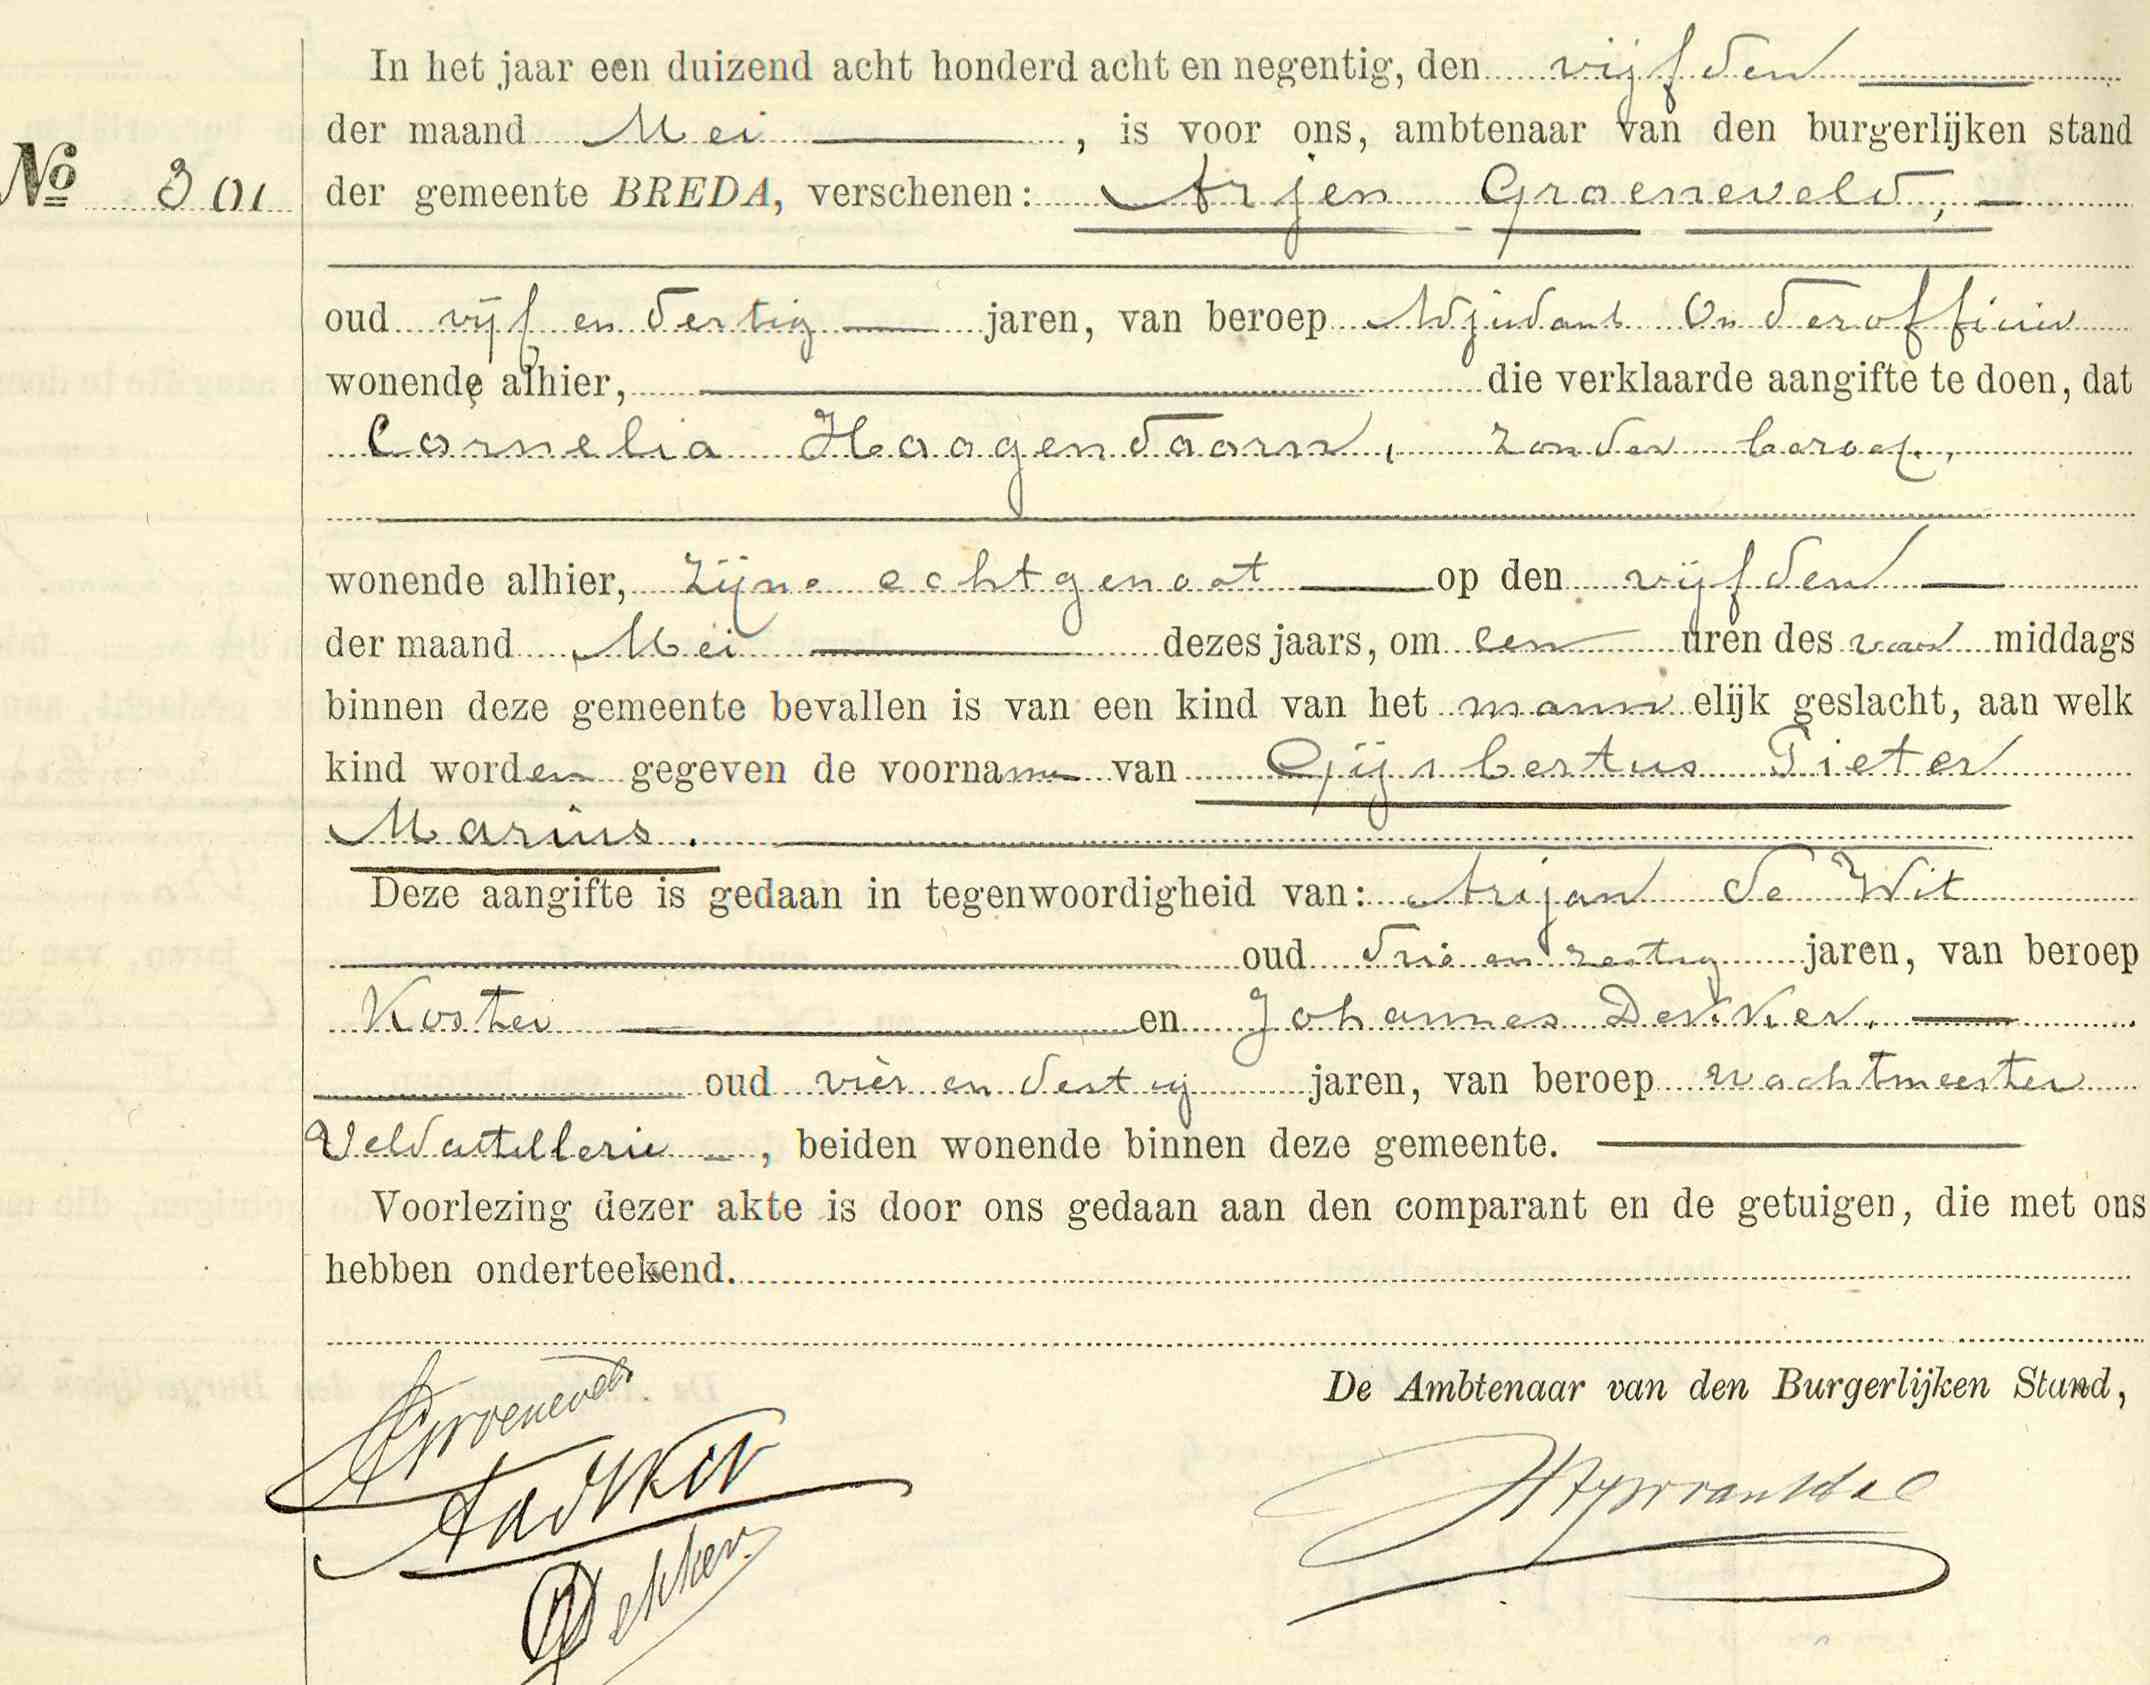 In het jaar een duizend acht honderd acht en negentig, den vijfden
der maand Mei, is voor ons, ambtenaar van den burgerlijken stand
No 301 der gemeente BREDA, verschenen: Arjen Groeneveld,
oud vijf en dertig jaren, van beroep Adjudant Onderofficier
wonende alhier, die verklaarde aangifte te doen, dat
Cornelia Hoogendoorn, zonder beroep,
wonende alhier, zijne echtgenoot op den vijfden
der maand Mei dezes jaars, om een uren des voor middags
binnen deze gemeente bevallen is van een kind van het mann elijk geslacht, aan welk
kind worden gegeven de voorname van Gijsbertus Pieter
Marius.
Deze aangifte is gedaan in tegenwoordigheid van: Arijan de Wit
oud drie en zestig jaren, van beroep
Koster en Johannes Dekker.
oud vier en dertig jaren, van beroep wachtmeester
Veldartillerie, beiden wonende binnen deze gemeente.
Voorlezing dezer akte is door ons gedaan aan den comparant en de getuigen, die met ons
hebben onderteekend.
De Ambtenaar van den Burgerlijken Stand,
AGroeneveld
Dekker